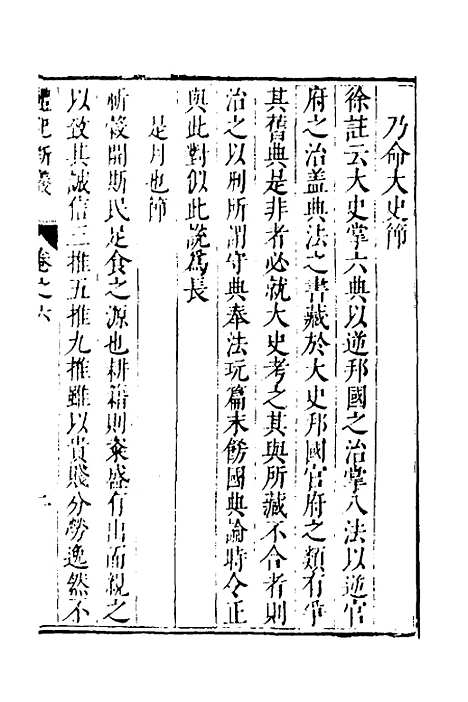 乃命大史節
徐註云大史掌六典以逆邦國之治掌八法以逆官
府之治盖典法之書藏於大史邦國官府之類有爭
其舊典是非者必就大史考之其與所藏不合者則
治之以刑所謂守典奉法玩篇末飭國典論時令正
與此對似此說爲長
是月也節
祈穀開斯民足食之源也耕籍則粢盛有出而親之
以致其誠信三推五推九推雖以貴賤分勞逸然不
禮記新義
卷之六